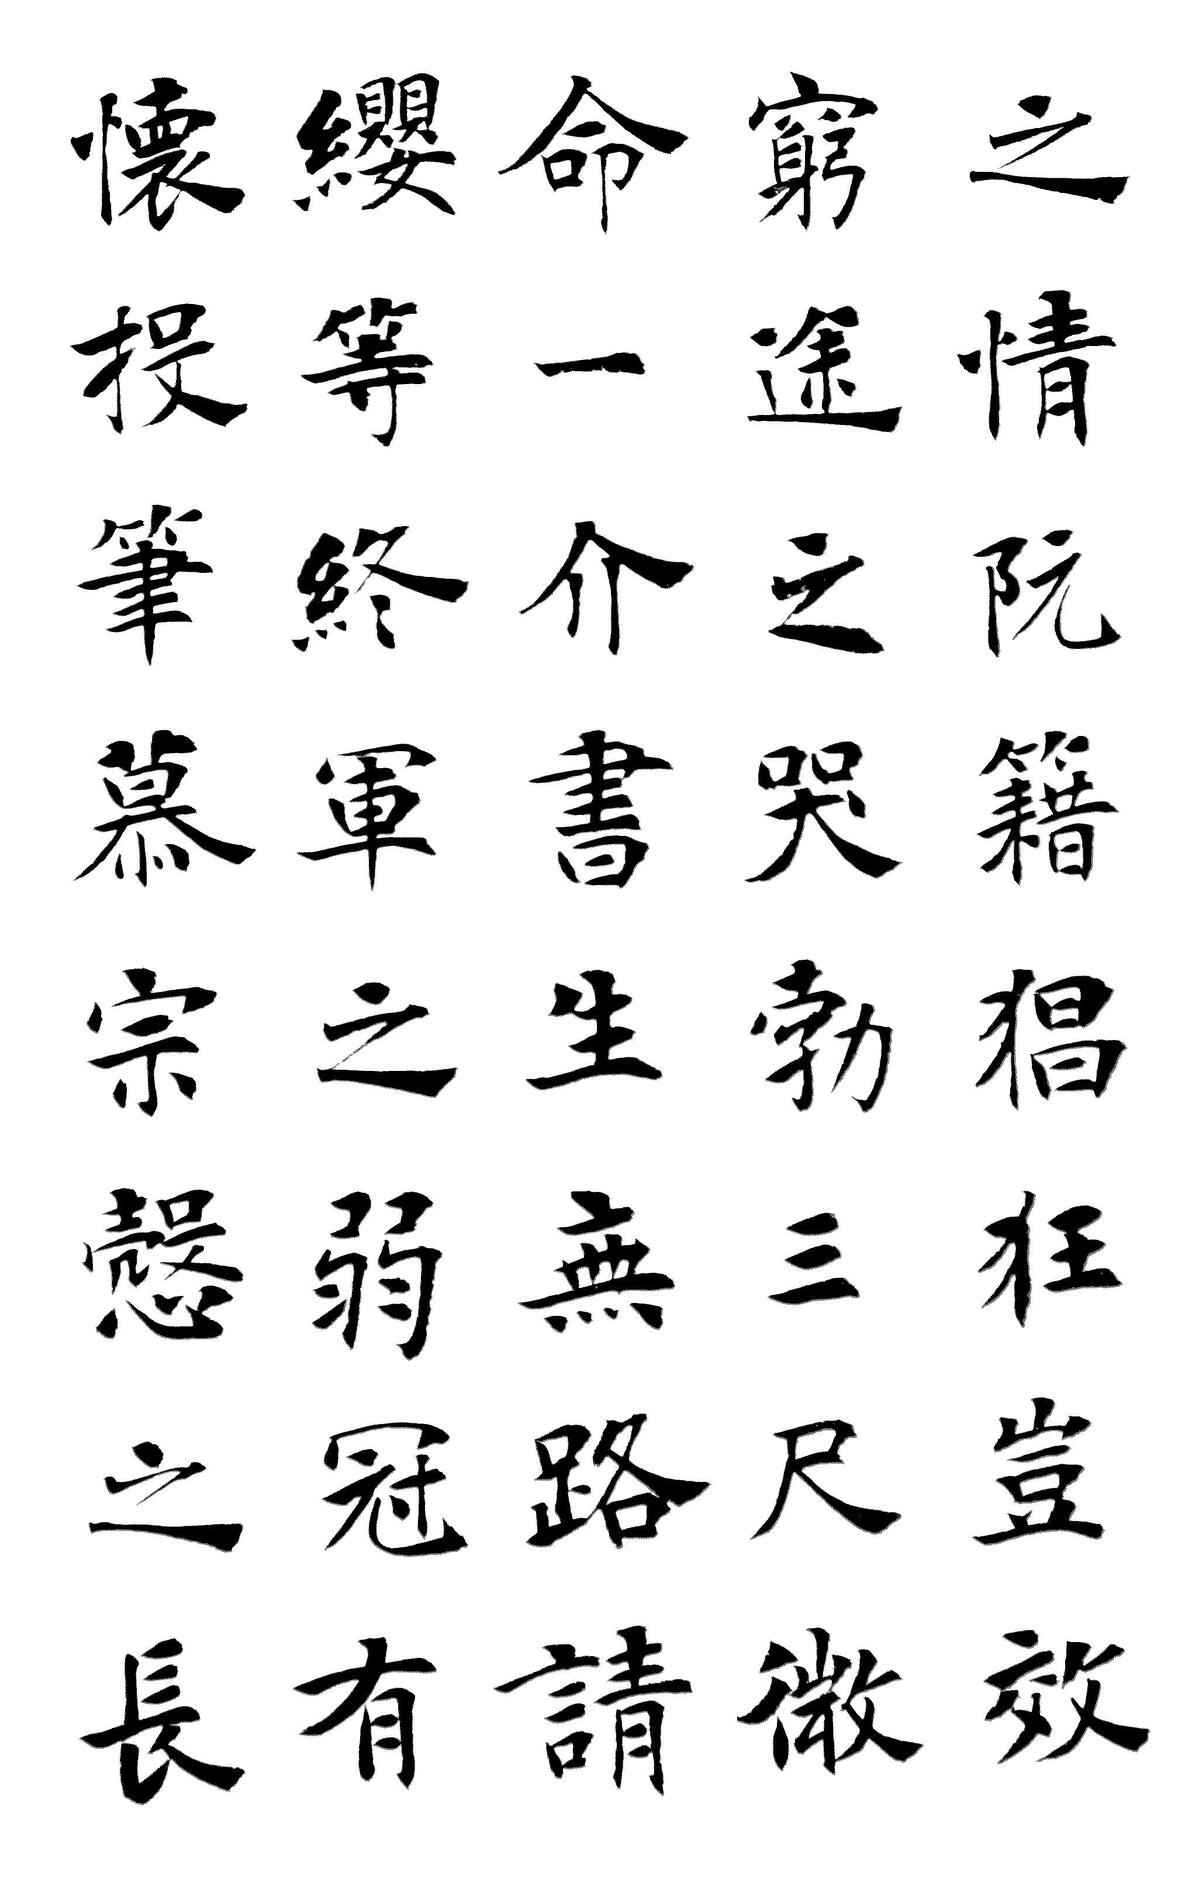 之情阮籍猖狂豈效
窮途之哭勃三尺微
命一介書生無路請
纓等終軍之弱冠有
懷投筆慕宗愨之長